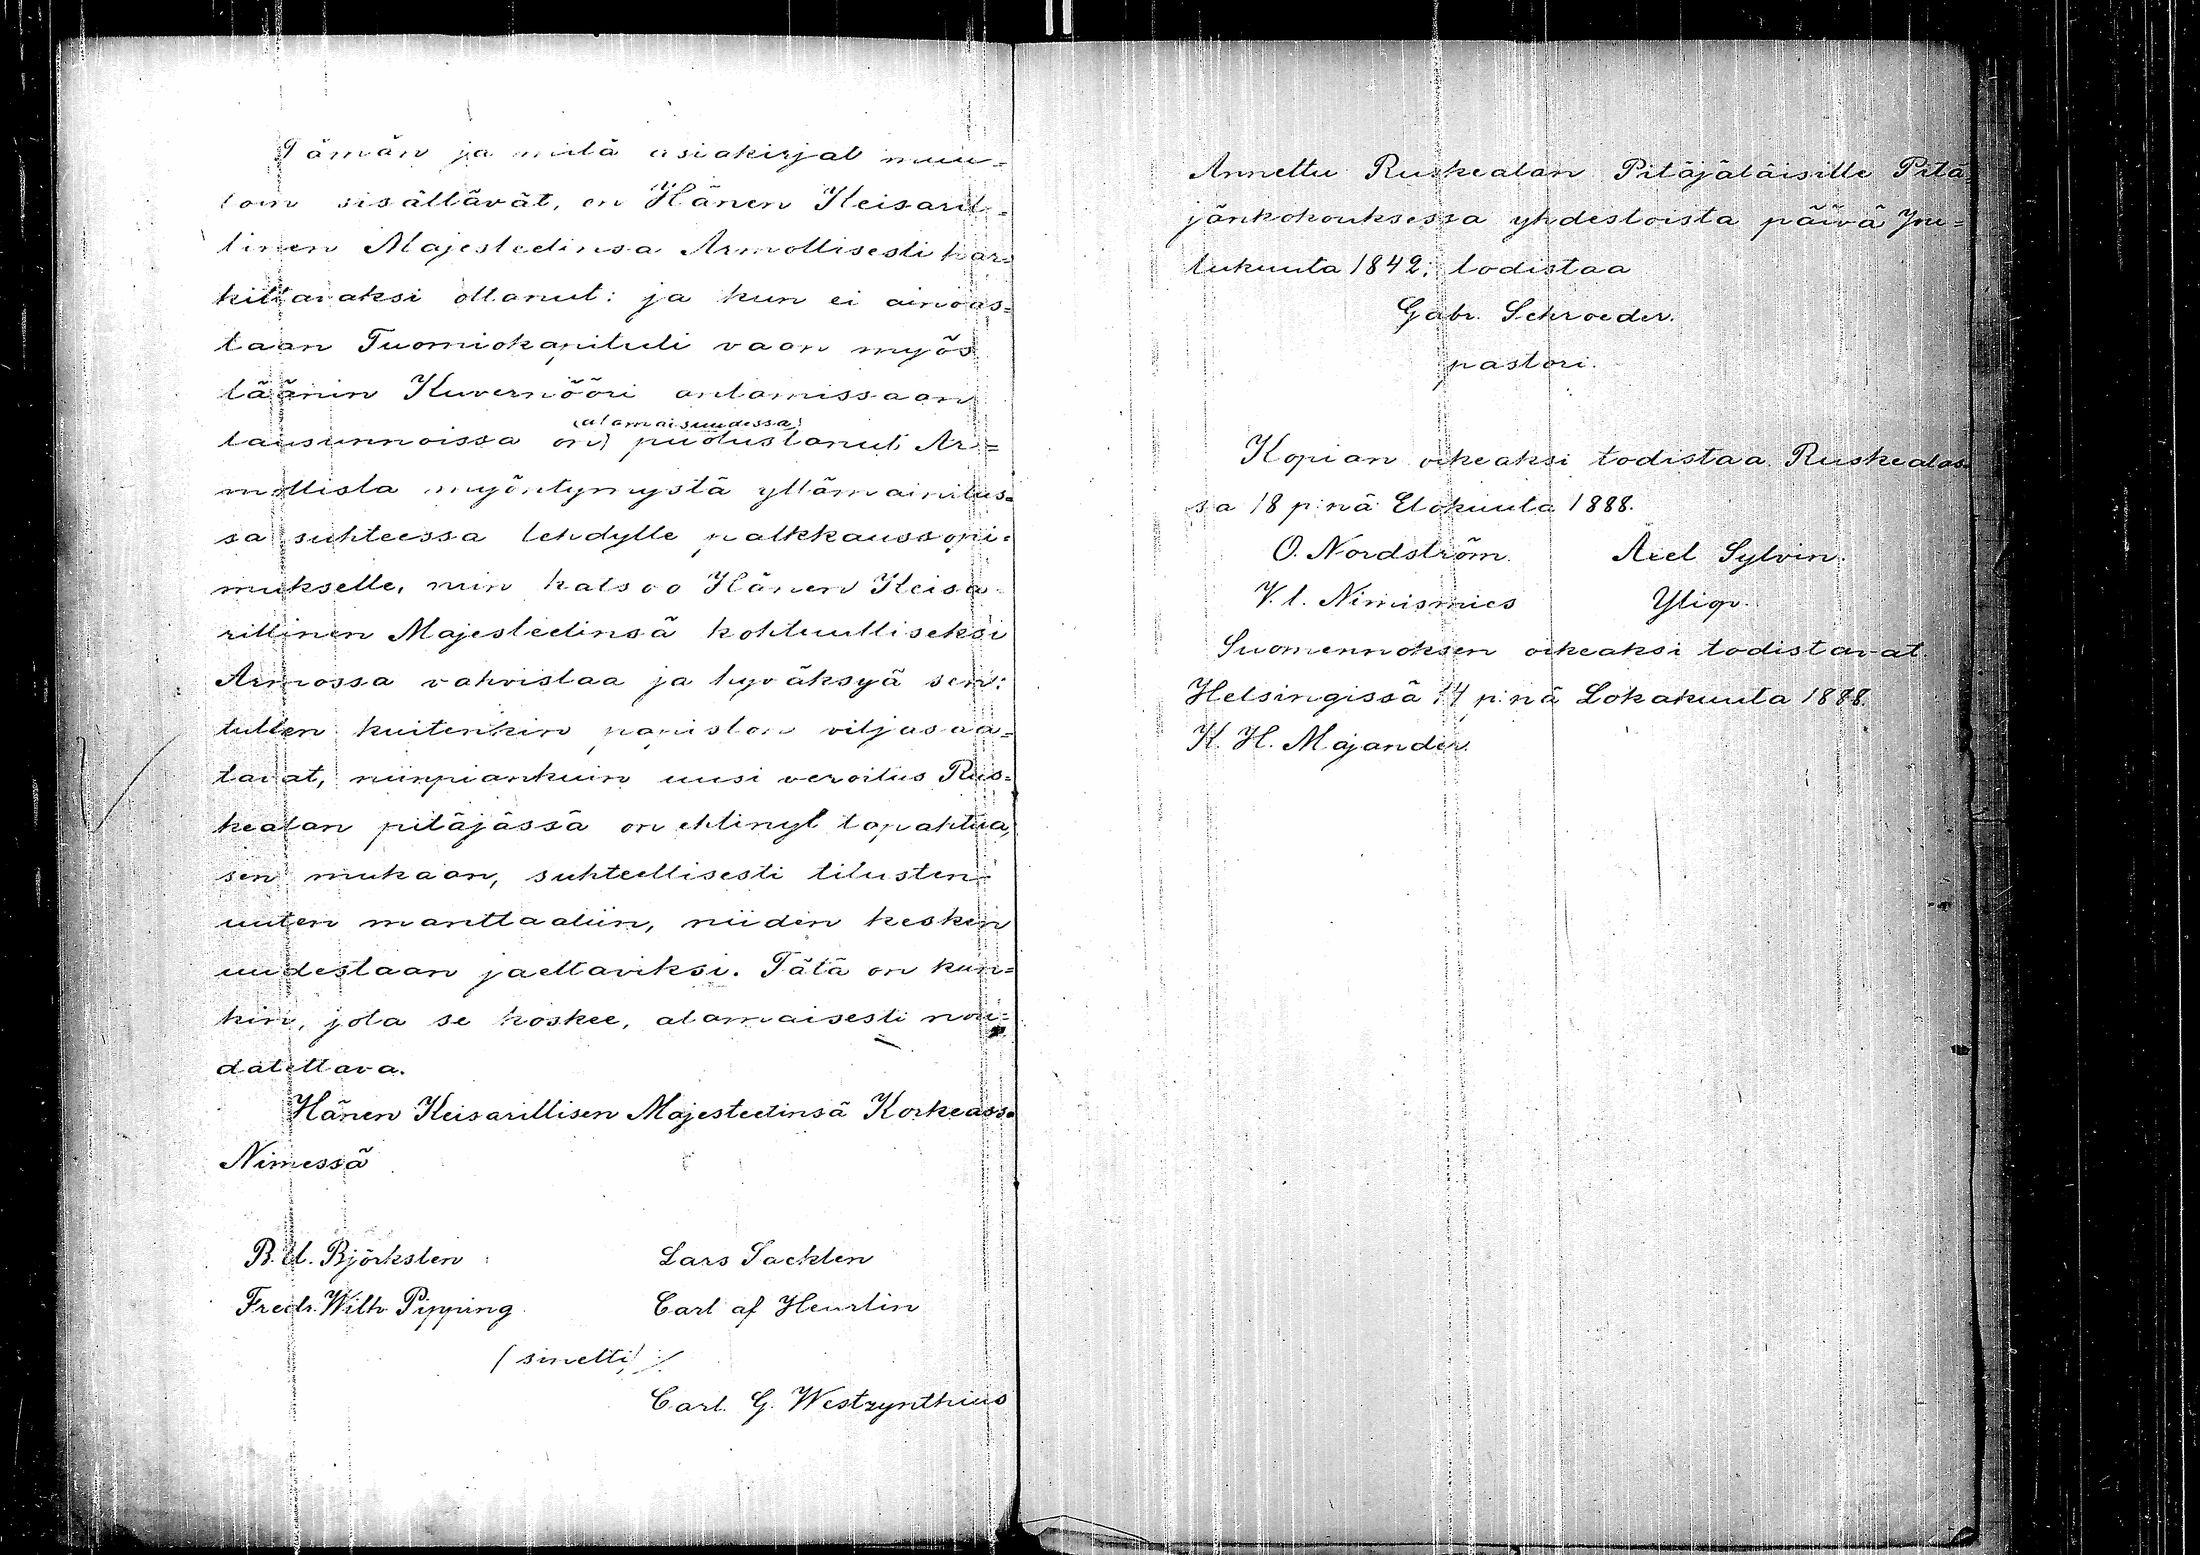 Tämän ja mitä asiakirjat muu=
toin sisältävät, on Hänen Keisaril=
linen Majesteetinsa Armollisesti har=
kittavaksi ottanut: ja kun ei ainoas=
taan Tuomiokapituli vaan myös
läänin Kuvernööri antamissaan
(alamaisuudessa)
lausunnoissa on) puolustanut Ar=
mollista myöntymystä yllämainitus=
sa suhteessa tehdylle palkkaussopi=
mukselle, niin katsoo Hänen Keisa=
rillinen Majesteetinsä kohtuulliseksi
Armossa vahvistaa ja hyväksyä sen:
tullen kuitenkin papiston viljasaa=
tavat, niinpiankuin uusi veroitus Rus=
kealan pitäjässä on ehtinyt tapahtua,
sen mukaan, suhteellisesti tilusten
uuten manttaaliin, niiden kesken
uudestaan jaettaviksi. Tätä on kun=
kin, jota se koskee, alamaisesti nou=
datettava.
Hänen Keisarillisen Majesteetinsä Korkeassa
Nimessä
B. U. Björksten Lars Sacklen
Fredr. Wilh. Pipping Carl af Heurlin
(sinetti)
Carl G. Westzynthius
Annettu Ruskealan Pitäjäläisille Pitä=
jänkokouksessa yhdestoista päivä Jou=
lukuuta 1842; todistaa
Gabr. Schroeder.
pastori.
Kopian oikeaksi todistaa Ruskealas=
sa 18 p:nä Elokuuta 1888.
O. Nordström. Axel Sylvin.
V. t. Nimismies Yliop.
Suomennoksen oikeaksi todistavat.
Helsingissä 14 p:nä Lokakuuta 1888.
K. H. Majander.